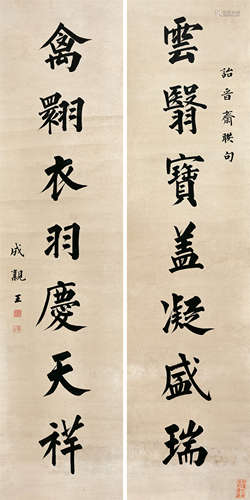 詒晋齋聯句
雲翳寶盖凝盛瑞
禽翾衣羽慶天祥
成親王